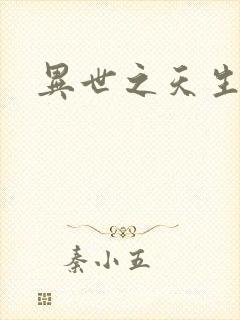 異世之天生
秦小五